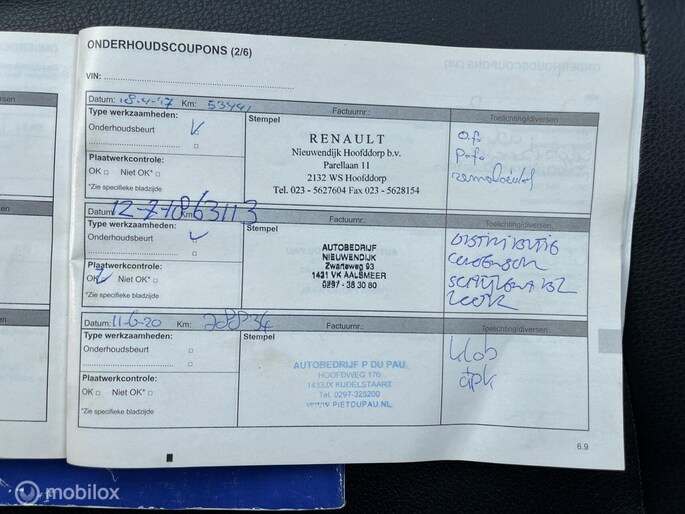 ONDERHOUDSCOUPONS (2/6)
VIN:
Datum: 18-4-'17 Km: 53441
Factuurnr.:
Toelichting/diversen
Type werkzaamheden:
Onderhoudsbeurt
Stempel
RENAULT
Nieuwendijk Hoofddorp b.v.
Parellaan 11
2132 WS Hoofddorp
Tel. 023 - 5627604 Fax 023 - 5628154
o.f.
p.f.
remvloeistof
Plaatwerkcontrole:
OK □ Niet OK* □
*Zie specifieke bladzijde
Datum: 12-7-18 Km: 63113
Factuurnr.:
Toelichting/diversen
Type werkzaamheden:
Onderhoudsbeurt
Stempel
AUTOBEDRIJF
NIEUWENDIJK
Zwarteweg 93
1431 VK AALSMEER
0297 - 38 30 80
DISTRIBUTIE
Plaatwerkcontrole:
OK Niet OK* □
*Zie specifieke bladzijde
Datum: 11-6-20 Km:
Factuurnr.:
Toelichting/diversen
Type werkzaamheden:
Onderhoudsbeurt □
Stempel
AUTOBEDRIJF P DU PAU
HOOFDWEG 176
1433JX KUDELSTAART
Tel. 0297-325200
WWW.PIETDUPAU.NL
apk
Plaatwerkcontrole:
OK □ Niet OK* □
*Zie specifieke bladzijde
6.9
mobilox